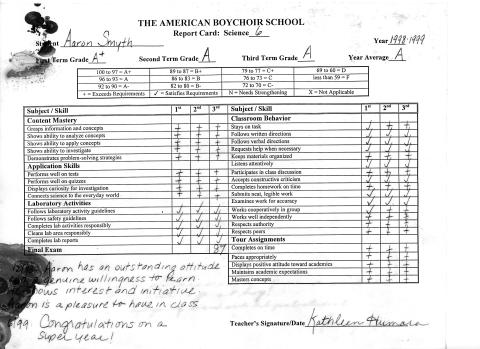 THE AMERICAN BOYCHOIR SCHOOL
Report Card: Science 6
Student Aaron Smyth Year 1998-1999
First Term Grade A+ Second Term Grade A Third Term Grade A Year Average A
100 to 97 = A+ 89 to 87 = B+ 79 to 77 = C+ 69 to 60 = D
96 to 93 = A 86 to 83 = B 76 to 73 = C less than 59 = F
92 to 90 = A- 82 to 80 = B- 72 to 70 = C-
+ = Exceeds Requirements ✓ = Satisfies Requirements N = Needs Strengthening X = Not Applicable
Subject / Skill 1st 2nd 3rd
Content Mastery
Grasps information and concepts + + +
Shows ability to analyze concepts + + +
Shows ability to apply concepts + + +
Shows ability to investigate + + +
Demonstrates problem-solving strategies + + +
Application Skills
Performs well on tests + + +
Performs well on quizzes + + +
Displays curiosity for investigation + + +
Connects science to the everyday world + + +
Laboratory Activities
Follows laboratory activity guidelines ✓ ✓ ✓
Follows safety guidelines ✓ ✓ ✓
Completes lab activities responsibly ✓ ✓ ✓
Cleans lab area responsibly ✓ ✓ ✓
Completes lab reports ✓ ✓ ✓
Final Exam
Subject / Skill 1st 2nd 3rd
Classroom Behavior
Stays on task
Follows written directions
Follows verbal directions
Requests help when necessary
Keeps materials organized
Listens attentively
Participates in class discussion
Accepts constructive criticism
Completes homework on time
Submits neat, legible work
Examines work for accuracy
Works cooperatively in group
Works well independently
Respects authority
Respects peers
Tour Assignments
Completes on time + + +
Paces appropriately + + +
Displays positive attitude toward academics + + +
Maintains academic expectations + + +
Masters concepts + + +
Aaron has an outstanding attitude
genuine willingness to learn
shows interest and initiative
Aaron is a pleasure to have in class
Congratulations on a
super year!
Teacher's Signature/Date Kathleen